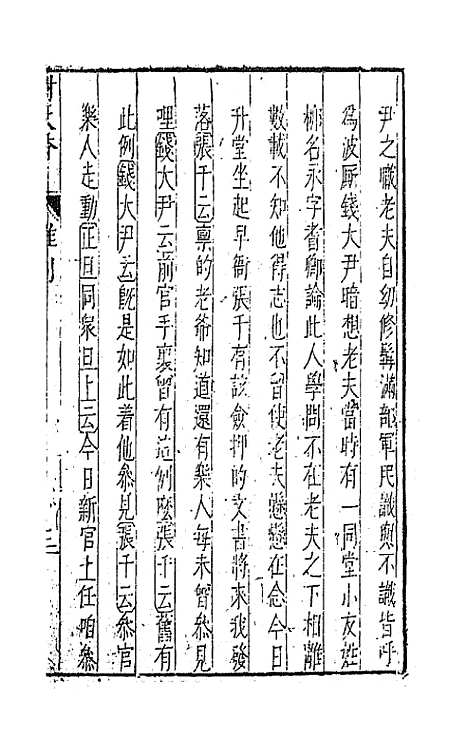 尹之職老夫自幼修髯滿部軍民識與不識皆呼
爲波廝錢大尹暗想老夫當時有一同堂小友姓
柳名永字耆卿論此人學問不在老夫之下相離
數載不知他得志也不曾使老夫懸懸在念今日
升堂坐起早衙張千有該僉押的文書將來我發
落張千云禀的老爺知道還有樂人每未曾參見
哩錢大尹云前官手裏曾有這例麼張千云舊有
此例錢大尹云旣是如此着他參見張千云參官
樂人走動正旦同衆旦上云今日新官上任咱參